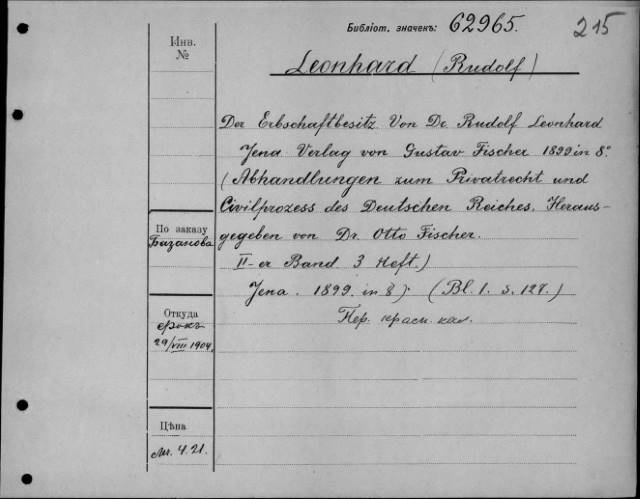 Библіот. значекъ: 62965.
215
Инв.
№
Leonhard (Rudolf)
Der Erbschaftbesitz Von Dr. Rudolf Leonhard
Jena Verlag von Gustav Fischer 1899 in 8°
(Abhandlungen zum Privatrecht und
Civilprozess des Deutschen Reiches. Heraus-
gegeben von Dr. Otto Fischer.
II-er Band 3 Heft.)
Jena. 1899. in 8) (Bl. 1. s. 127.)
Пер. красн. кал.
По заказу
Базанова
Откуда
29/VIII 1904.
Цѣна
4.21.